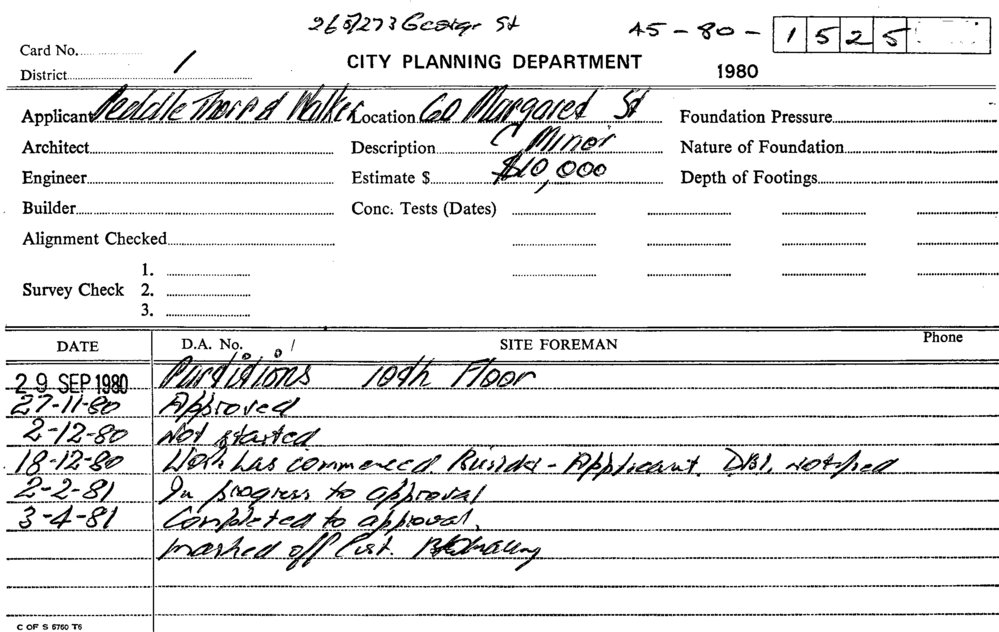 265/273 George St 45-80-1525
Card No.
District 1
CITY PLANNING DEPARTMENT 1980
Applicant Peddle Thorp & Walker Location 60 Margaret St Foundation Pressure
Architect Description C Minor Nature of Foundation
Engineer Estimate $ $10,000 Depth of Footings
Builder Conc. Tests (Dates)
Alignment Checked
1.
Survey Check 2.
3.
DATE D.A. No. / SITE FOREMAN Phone
29 SEP 1980 Partitions 10th Floor
27-11-80 Approved
2-12-80 Not started
18-12-80 Work has commenced Builder - Applicant. D.B.I. notified
2-2-81 In progress to approval
3-4-81 Completed to approval.
marked off List.
C OF S 5760 T6